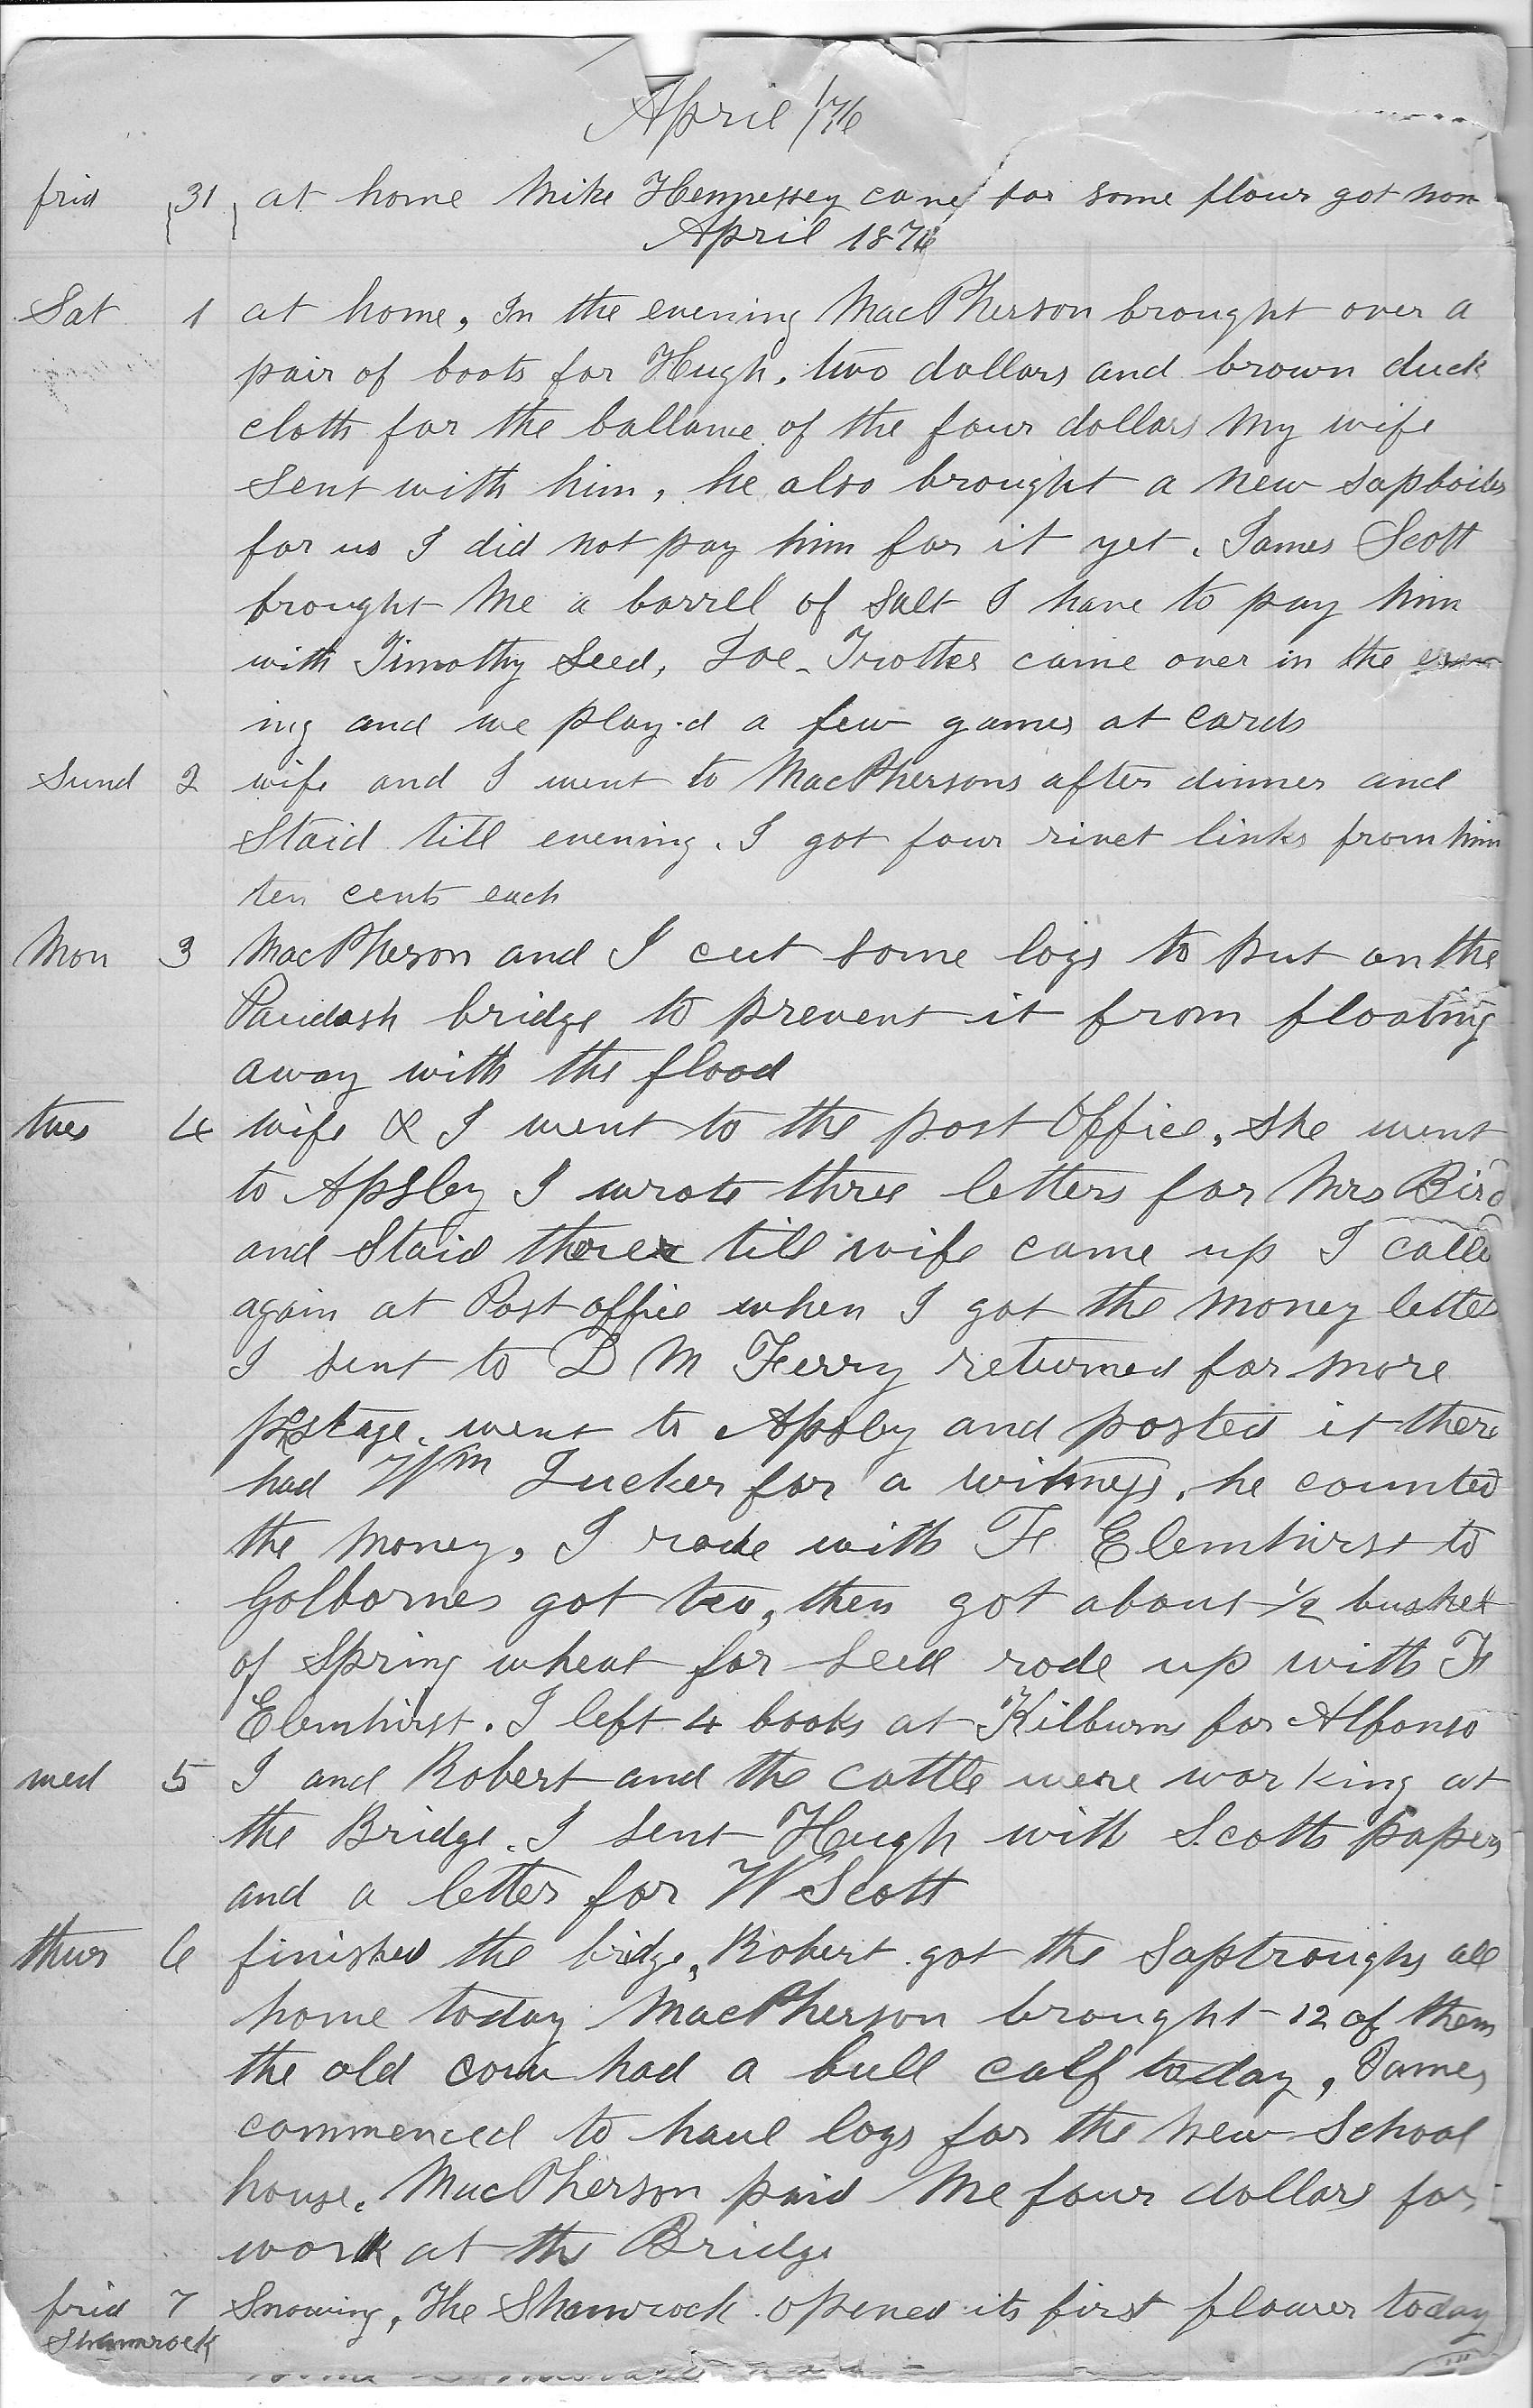 April /76
frid 31 at home Mike Hennessey came for some flour got non
April 1876
Sat 1 at home, In the evening MacPherson brought over a
pair of boots for Hugh. two dollars and brown duck
cloth for the ballance of the four dollars My wife
Sent with him, he also brought a new sapboiler
for us I did not pay him for it yet. James Scott
brought Me a barrell of Salt I have to pay him
with Timothy Seed, Joe Trotter came over in the even
ing and we play.d a few games at Cards
Sund 2 wife and I went to MacPhersons after dinner and
Staid till evening. I got four rivet links from him
ten cents each
Mon 3 MacPherson and I cut some logs to put on the
Paudash bridge to prevent it from floating
away with the flood
tues 4 wife & I went to the post Office, She went
to Apsley I wrote three letters for Mrs Bird
and Staid there till wife came up I calld
again at Post office when I got the Money letter
I sent to D M Ferry returned for more
postage. went to Apsley and posted it there
had Wm Tucker for a witness, he counted
the Money, I rode with F Elemhirst to
Golbornes got tea, then got about 1/2 bushel
of Spring wheat for seed rode up with F
Elemhirst. I left 4 books at Kilburns for Alfonso
wed 5 I and Robert and the cattle were working at
the Bridge. I sent Hugh with Scotts papers
and a letter for W Scott
thurs 6 finished the bridge, Robert got the Saptroughs all
home today MacPherson brought 12 of them
the old cow had a bull calf today, James
commenced to haul logs for the new School
house. MacPherson paid Me four dollars for
work at the Bridge
frid 7 Snowing, The Shamrock opened its first flower today
Shamrock